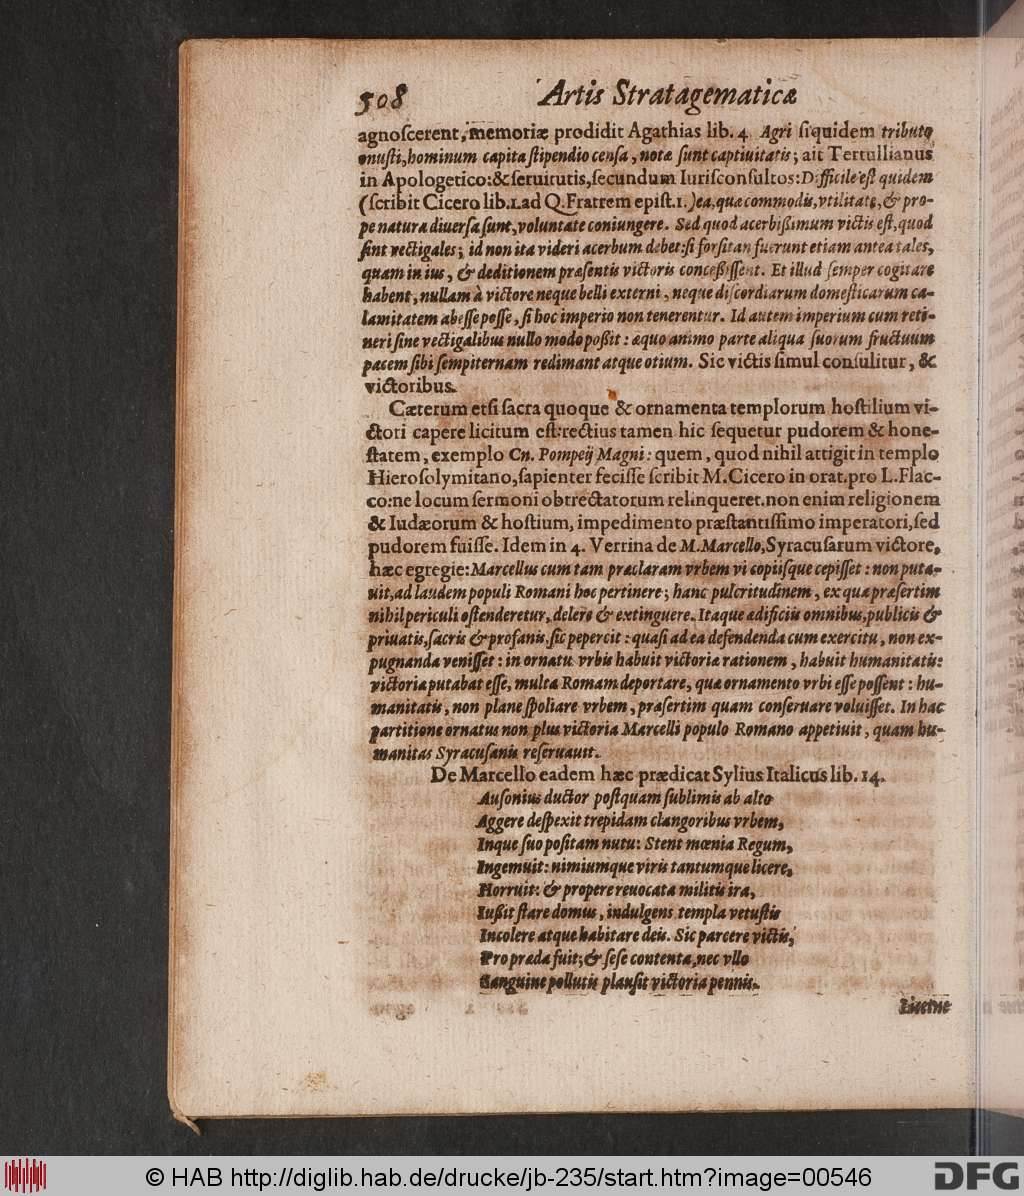 508 Artis Stratagematicæ
agnoſcerent, memoriæ prodidit Agathias lib. 4. Agri ſiquidem tributo
onuſti, hominum capita ſtipendio cenſa, notæ ſunt captiuitatis; ait Tertullianus
in Apologetico: & ſeruitutis, ſecundum Iuriſconſultos: Difficile eſt quidem
(ſcribit Cicero lib. 1. ad Q. Fratrem epiſt. 1.) ea, quæ commodis, vtilitate, & pro-
pe natura diuerſa ſunt, voluntate coniungere. Sed quod acerbißimum victis eſt, quod
ſint vectigales; id non ita videri acerbum debet: ſi forſitan fuerunt etiam antea tales,
quam in ius, & deditionem præſentis victoris conceßiſſent. Et illud ſemper cogitare
habent, nullam à victore neque belli externi, neque diſcordiarum domeſticarum ca-
lamitatem abeſſe poſſe, ſi hoc imperio non tenerentur. Id autem imperium cum reti-
neri ſine vectigalibus nullo modo poßit: æquo animo parte aliqua ſuorum fructuum
pacem ſibi ſempiternam redimant atque otium. Sic victis ſimul conſulitur, &
victoribus.
Cæterum etſi ſacra quoque & ornamenta templorum hoſtilium vi-
ctori capere licitum eſt: rectius tamen hic ſequetur pudorem & hone-
ſtatem, exemplo Cn. Pompeij Magni: quem, quod nihil attigit in templo
Hieroſolymitano, ſapienter feciſſe ſcribit M. Cicero in orat. pro L. Flac-
co: ne locum ſermoni obtrectatorum relinqueret. non enim religionem
& Iudæorum & hoſtium, impedimento præſtantiſſimo imperatori, ſed
pudorem fuiſſe. Idem in 4. Verrina de M. Marcello, Syracuſarum victore,
hæc egregie: Marcellus cum tam præclaram vrbem vi copiiſque cepiſſet: non puta-
uit, ad laudem populi Romani hoc pertinere; hanc pulcritudinem, ex qua præſertim
nihil periculi oſtenderetur, delere & extinguere. Itaque ædificiis omnibus, publicis &
priuatis, ſacris & profanis, ſic pepercit: quaſi ad ea defendenda cum exercitu, non ex-
pugnanda veniſſet: in ornatu vrbis habuit victoriæ rationem, habuit humanitatis:
victoriæ putabat eſſe, multa Romam deportare, quæ ornamento vrbi eſſe poſſent: hu-
manitatis, non plane ſpoliare vrbem, præſertim quam conſeruare voluiſſet. In hac
partitione ornatus non plus victoria Marcelli populo Romano appetiuit, quam hu-
manitas Syracuſanis reſeruauit.
De Marcello eadem hæc prædicat Sylius Italicus lib. 14.
Auſonius ductor poſtquam ſublimis ab alto
Aggere deſpexit trepidam clangoribus vrbem,
Inque ſuo poſitam nutu: Stent mœnia Regum,
Ingemuit: nimiumque viris tantumque licere,
Horruit: & propere reuocata militis ira,
Iußit ſtare domus, indulgens templa vetuſtis
Incolere atque habitare deis. Sic parcere victis,
Pro præda fuit; & ſeſe contenta, nec vllo
Sanguine pollutis plauſit victoria pennis.
© HAB http://diglib.hab.de/drucke/jb-235/start.htm?image=00546 DFG